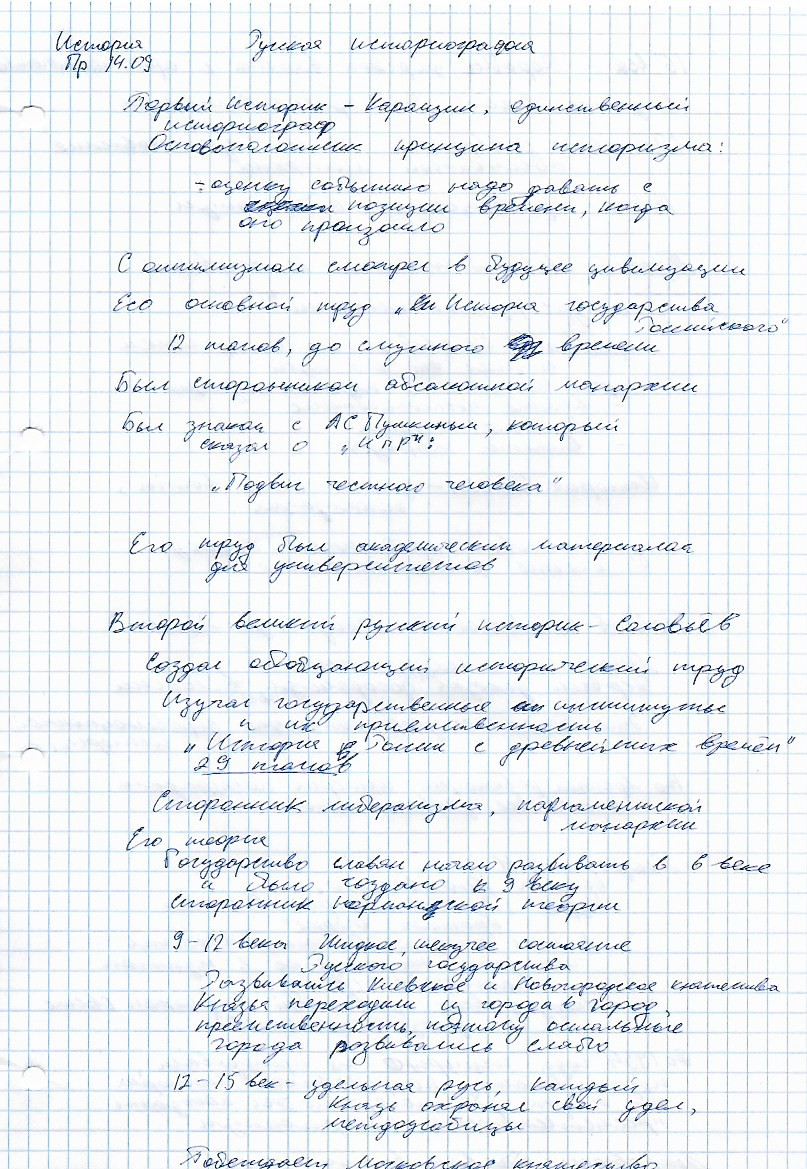 История Руская историография
Пр 14.09
Первый историк - Карамзин, единственный
историограф
Основоположник принципа историзма:
- оценку событию надо давать с
позиции времени, когда
оно произошло
С оптимизмом смотрел в будущее цивилизации
Его основной труд „История государства
Российского"
12 томов, до смутного времени
Был сторонником абсолютной монархии
Был знаком с АС Пушкиным, который
сказал о „ИГР":
„Подвиг честного человека"
Его труд был академическим материалом
для университетов
Второй великий русский историк - Соловьёв
Создал обобщающий исторический труд
Изучал государственные институты
и их приемственность
„История России с древнейших времён"
29 томов
Сторонник либерализма, парламентской
монархии
Его теория
Государство славян начало развивать в 6 веке
и было создано к 9 веку
Сторонник норманской теории
9-12 века Жидкое, текучее состояние
Русского государства
Развивались Киевское и Новогородское княжества
Князья переходили из города в город,
преемственность, поэтому остальные
города развивались слабо
12-15 век - удельная русь, каждый
князь охранял свой удел,
междоусобицы
Побеждает Московское княжество